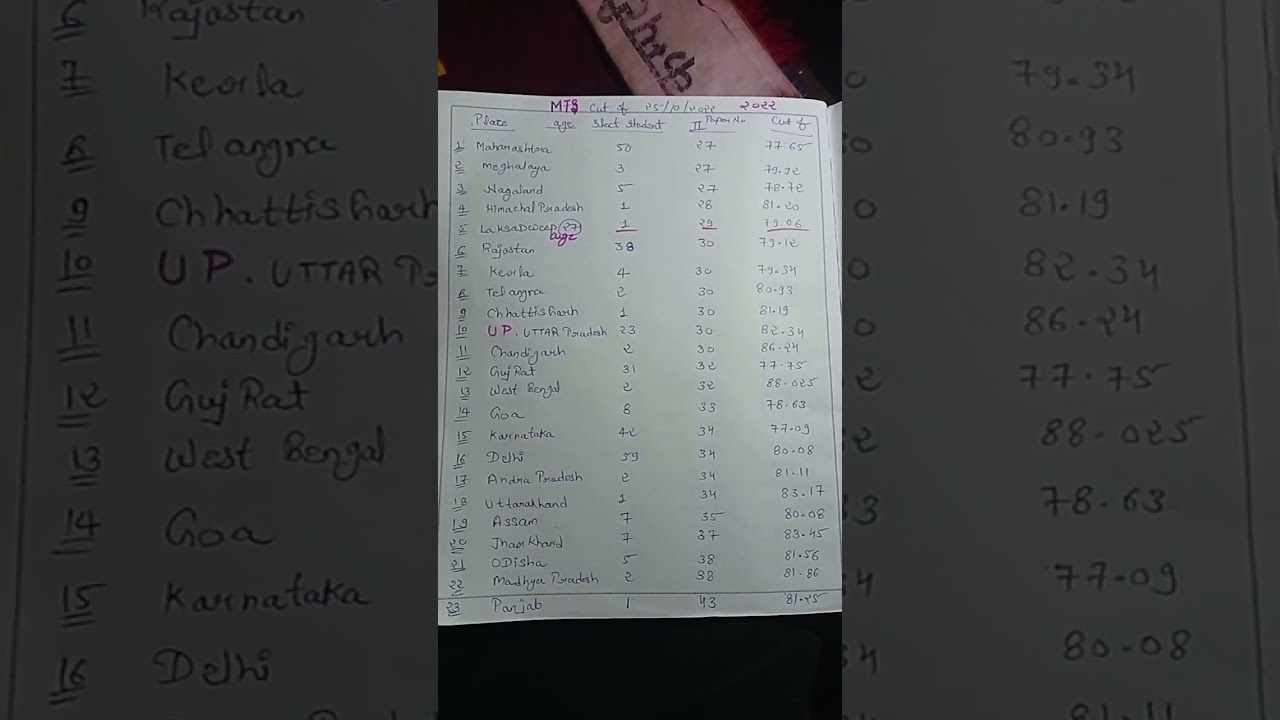 Check
MTS Cut of 25/10/2022 2022
Place age Slect Student II Paper No Cut of
1 Maharashtra 50 27 77.65
2 Meghalaya 3 27 79.92
3 Nagaland 5 27 78.72
4 Himachal Pradesh 1 28 81.20
5 LaksaDweep 27 age 1 29 79.06
6 Rajastan 38 30 79.12
7 Kerla 4 30 79.34
8 Telangna 2 30 80.93
9 Chhattisharh 1 30 81.19
10 UP. UTTAR Pradesh 23 30 82.34
11 Chandigarh 2 30 86.24
12 GujRat 31 32 77.75
13 West Bengal 2 32 88.025
14 Goa 8 33 78.63
15 Karnataka 42 34 77-09
16 Delhi 59 34 80-08
17 Andra Pradesh 2 34 81.11
18 Uttarakhand 1 34 83.17
19 Assam 7 35 80-08
20 Jharkhand 7 37 83.45
21 ODisha 5 38 81.56
22 Madhya Pradesh 2 38 81.86
23 Panjab 1 43 81.25